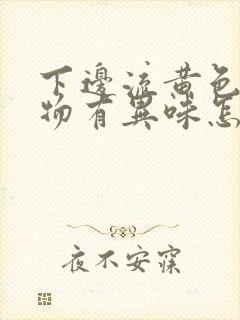 下邊流黄色
物有異味怎
夜不安寐